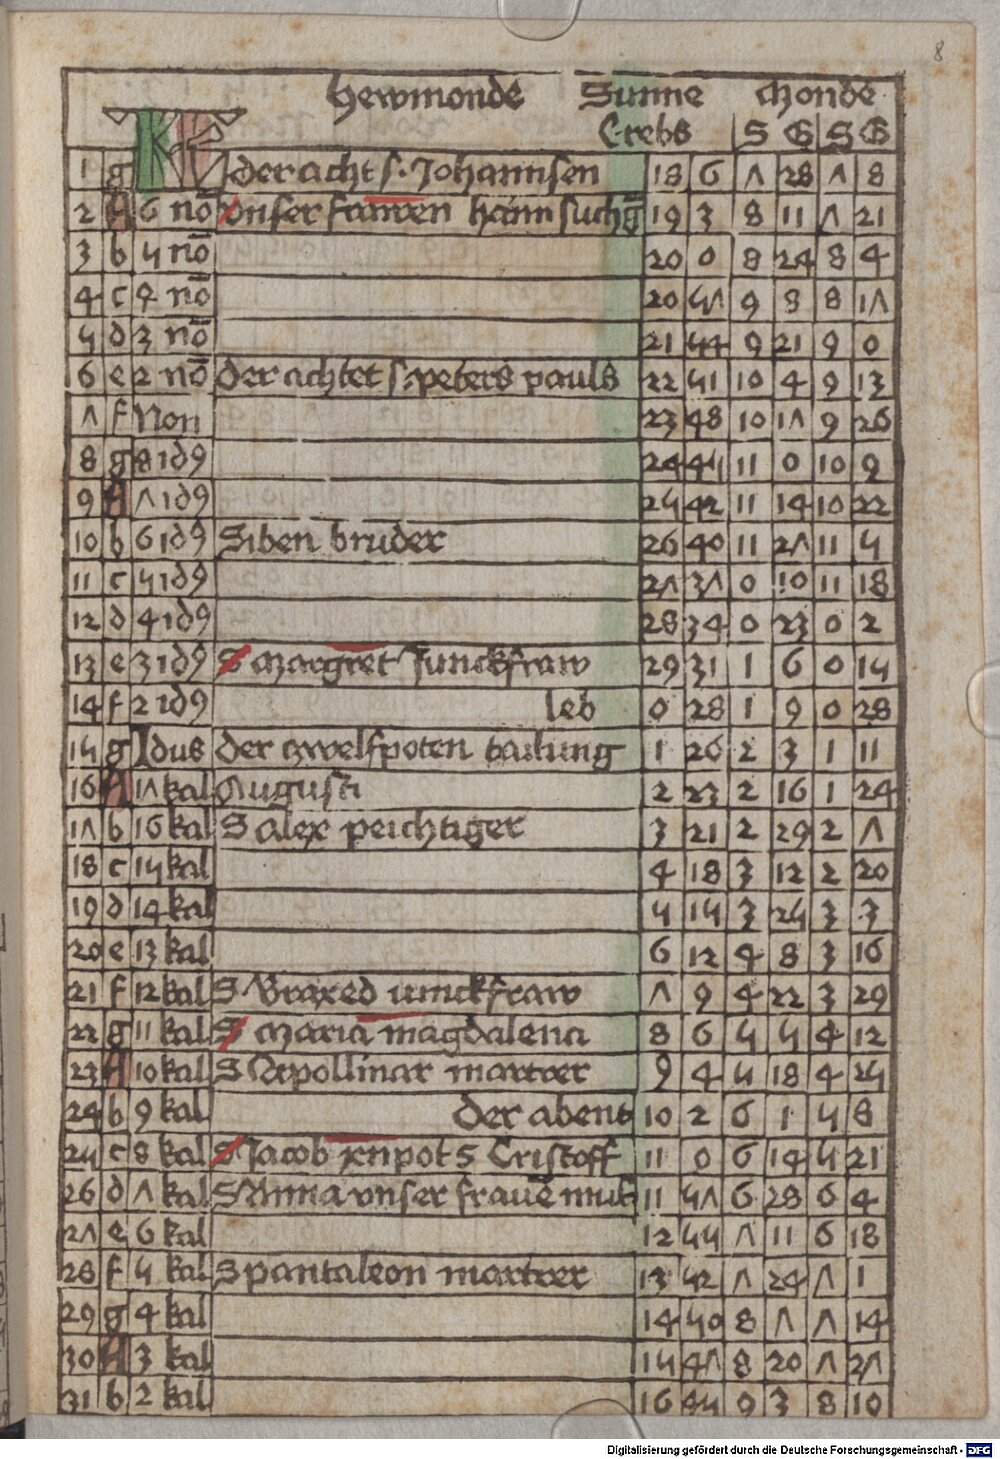 8
Hewmonde Sunne Monde
Crebs S G S G
KL
1 g der acht s. Johannsen 18 6 7 28 7 8
2 A 6 nō Vnser frawen haimsuchg 19 3 8 11 7 21
3 b 5 nō 20 0 8 24 8 4
4 c 4 nō 20 57 9 8 8 17
5 d 3 nō 21 54 9 21 9 0
6 e 2 nō der achtet s. peters pauls 22 51 10 4 9 13
7 f Non 23 48 10 17 9 26
8 g 8 id9 24 45 11 0 10 9
9 A 7 id9 25 42 11 14 10 22
10 b 6 id9 Siben bruder 26 40 11 27 11 5
11 c 5 id9 27 37 0 10 11 18
12 d 4 id9 28 34 0 23 0 2
13 e 3 id9 S Margret Junckfraw 29 31 1 6 0 15
14 f 2 id9 leb 0 28 1 9 0 28
15 g Idus der zwelfpoten tailung 1 26 2 3 1 11
16 A 17 kal Augusti 2 23 2 16 1 24
17 b 16 kal S Alex peichtiger 3 21 2 29 2 7
18 c 15 kal 4 18 3 12 2 20
19 d 14 kal 5 15 3 25 3 3
20 e 13 kal 6 12 4 8 3 16
21 f 12 kal S Braxed iunckfraw 7 9 4 22 3 29
22 g 11 kal S Maria magdalena 8 6 5 5 4 12
23 A 10 kal S Appollinar martrer 9 4 5 18 4 25
24 b 9 kal der abent 10 2 6 1 5 8
25 c 8 kal S Jacob xnpot S Cristoff 11 0 6 14 5 21
26 d 7 kal S Anna vnser frauē mut 11 57 6 28 6 4
27 e 6 kal 12 55 7 11 6 18
28 f 5 kal S pantaleon martrer 13 52 7 24 7 1
29 g 4 kal 14 50 8 7 7 14
30 A 3 kal 15 47 8 20 7 27
31 b 2 kal 16 45 9 3 8 10
Digitalisierung gefördert durch die Deutsche Forschungsgemeinschaft - DFG